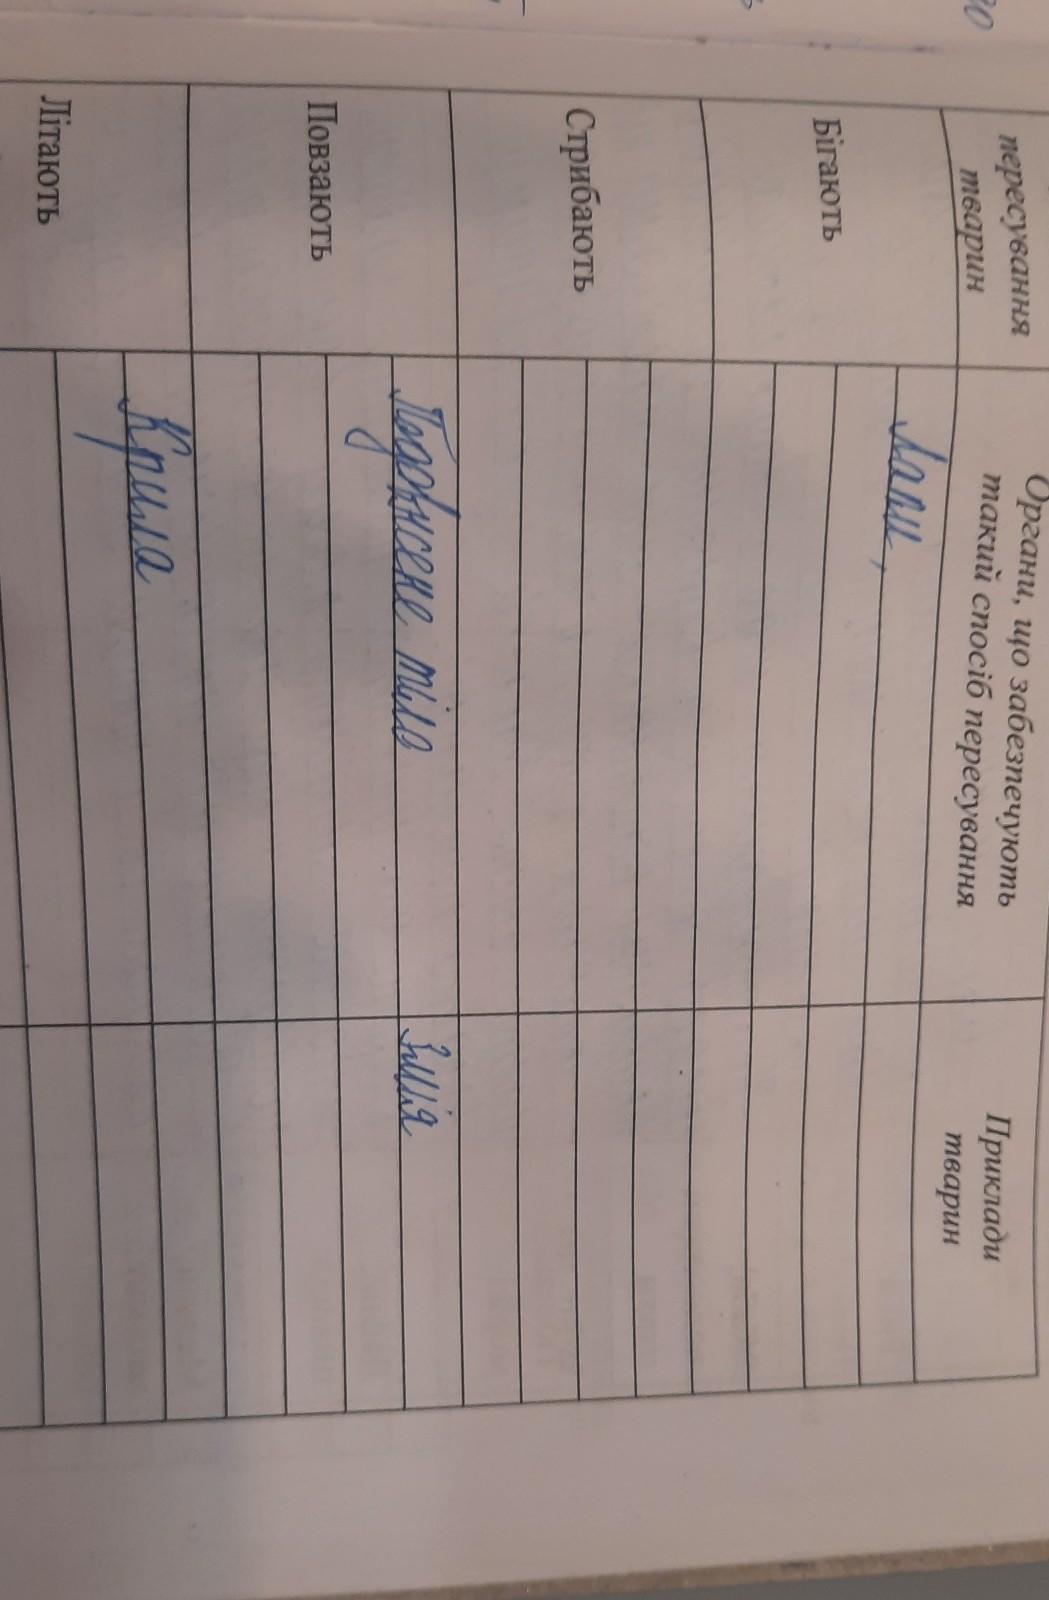 пересування
тварин
Органи, що забезпечують
такий спосіб пересування
Приклади
тварин
Бігають
Лапи,
Стрибають
Повзають
Подовжене тіло
Змія
Літають
Крила